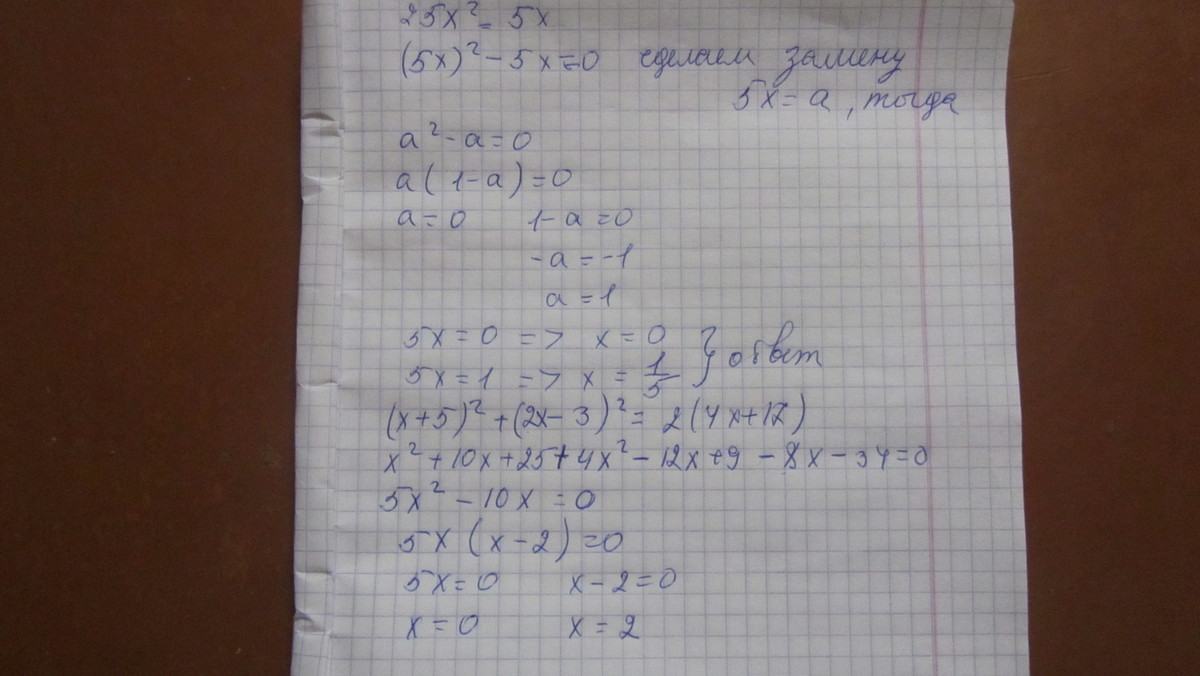 25x² = 5x
(5x)² - 5x = 0 сделаем замену
5x = a, тогда
a² - a = 0
a(1-a) = 0
a = 0 1 - a = 0
-a = -1
a = 1
5x = 0 => x = 0
5x = 1 => x = 1/5 } ответ
(x+5)² + (2x-3)² = 2(4x+17)
x² + 10x + 25 + 4x² - 12x + 9 - 8x - 34 = 0
5x² - 10x = 0
5x (x-2) = 0
5x = 0 x - 2 = 0
x = 0 x = 2